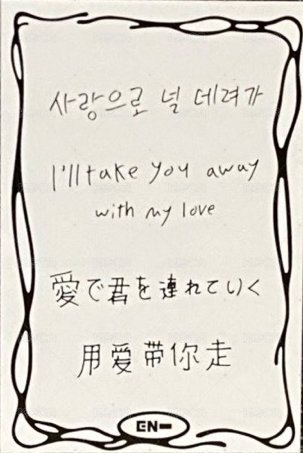 사랑으로 널 데려가
I'll take you away
with my love
愛で君を連れていく
用爱带你走
EN-